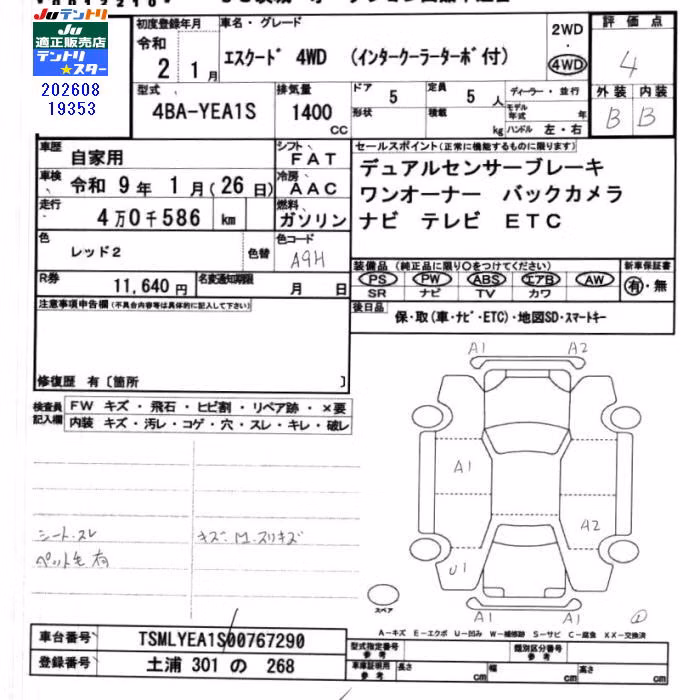 Juテントリ
Ju
適正販売店
テントリ
★スター
202608
19353
初度登録年月
令和
2 1月
車名・グレード
エスクード 4WD (インタークーラーターボ付)
2WD
・
4WD
評価点
4
外装 内装
B B
型式
4BA-YEA1S
排気量
1400
CC
ドア 5
形状
定員 5 人
積載 kg
ディーラー・並行
モデル年式 年
ハンドル 左・右
車歴 自家用
シフト FAT
車検 令和 9年 1月(26日)
冷房 AAC
走行 4万0千586 km
燃料 ガソリン
セールスポイント(正常に機能するものに限ります)
デュアルセンサーブレーキ
ワンオーナー バックカメラ
ナビ テレビ ETC
色 レッド2
色替
色コード
A9H
R券 11,640円
名変通知期限
月 日
装備品(純正品に限り○をつけてください)
PS PW ABS エアB AW
SR ナビ TV カワ
新車保証書
有・無
後日品
保・取(車・ナビ・ETC)・地図SD・スマートキー
注意事項申告欄(不具合内容等は具体的に記入して下さい)
修復歴 有〔箇所 〕
検査員記入欄
FW キズ・飛石・ヒビ割・リペア跡・×要
内装 キズ・汚レ・コゲ・穴・スレ・キレ・破レ
シート.スレ
ペット毛有
キズ.M.スリキズ
A1 A2
A1
A2
U1
A1 A1
スペア
A-キズ E-エクボ U-凹み W-補修跡 S-サビ C-腐食 XX-交換済
車台番号 TSMLYEA1S00767290
登録番号 土浦 301 の 268
型式指定番号
参考
類別区分番号
参考
車庫証明用
参考
長さ cm
幅 cm
高さ cm